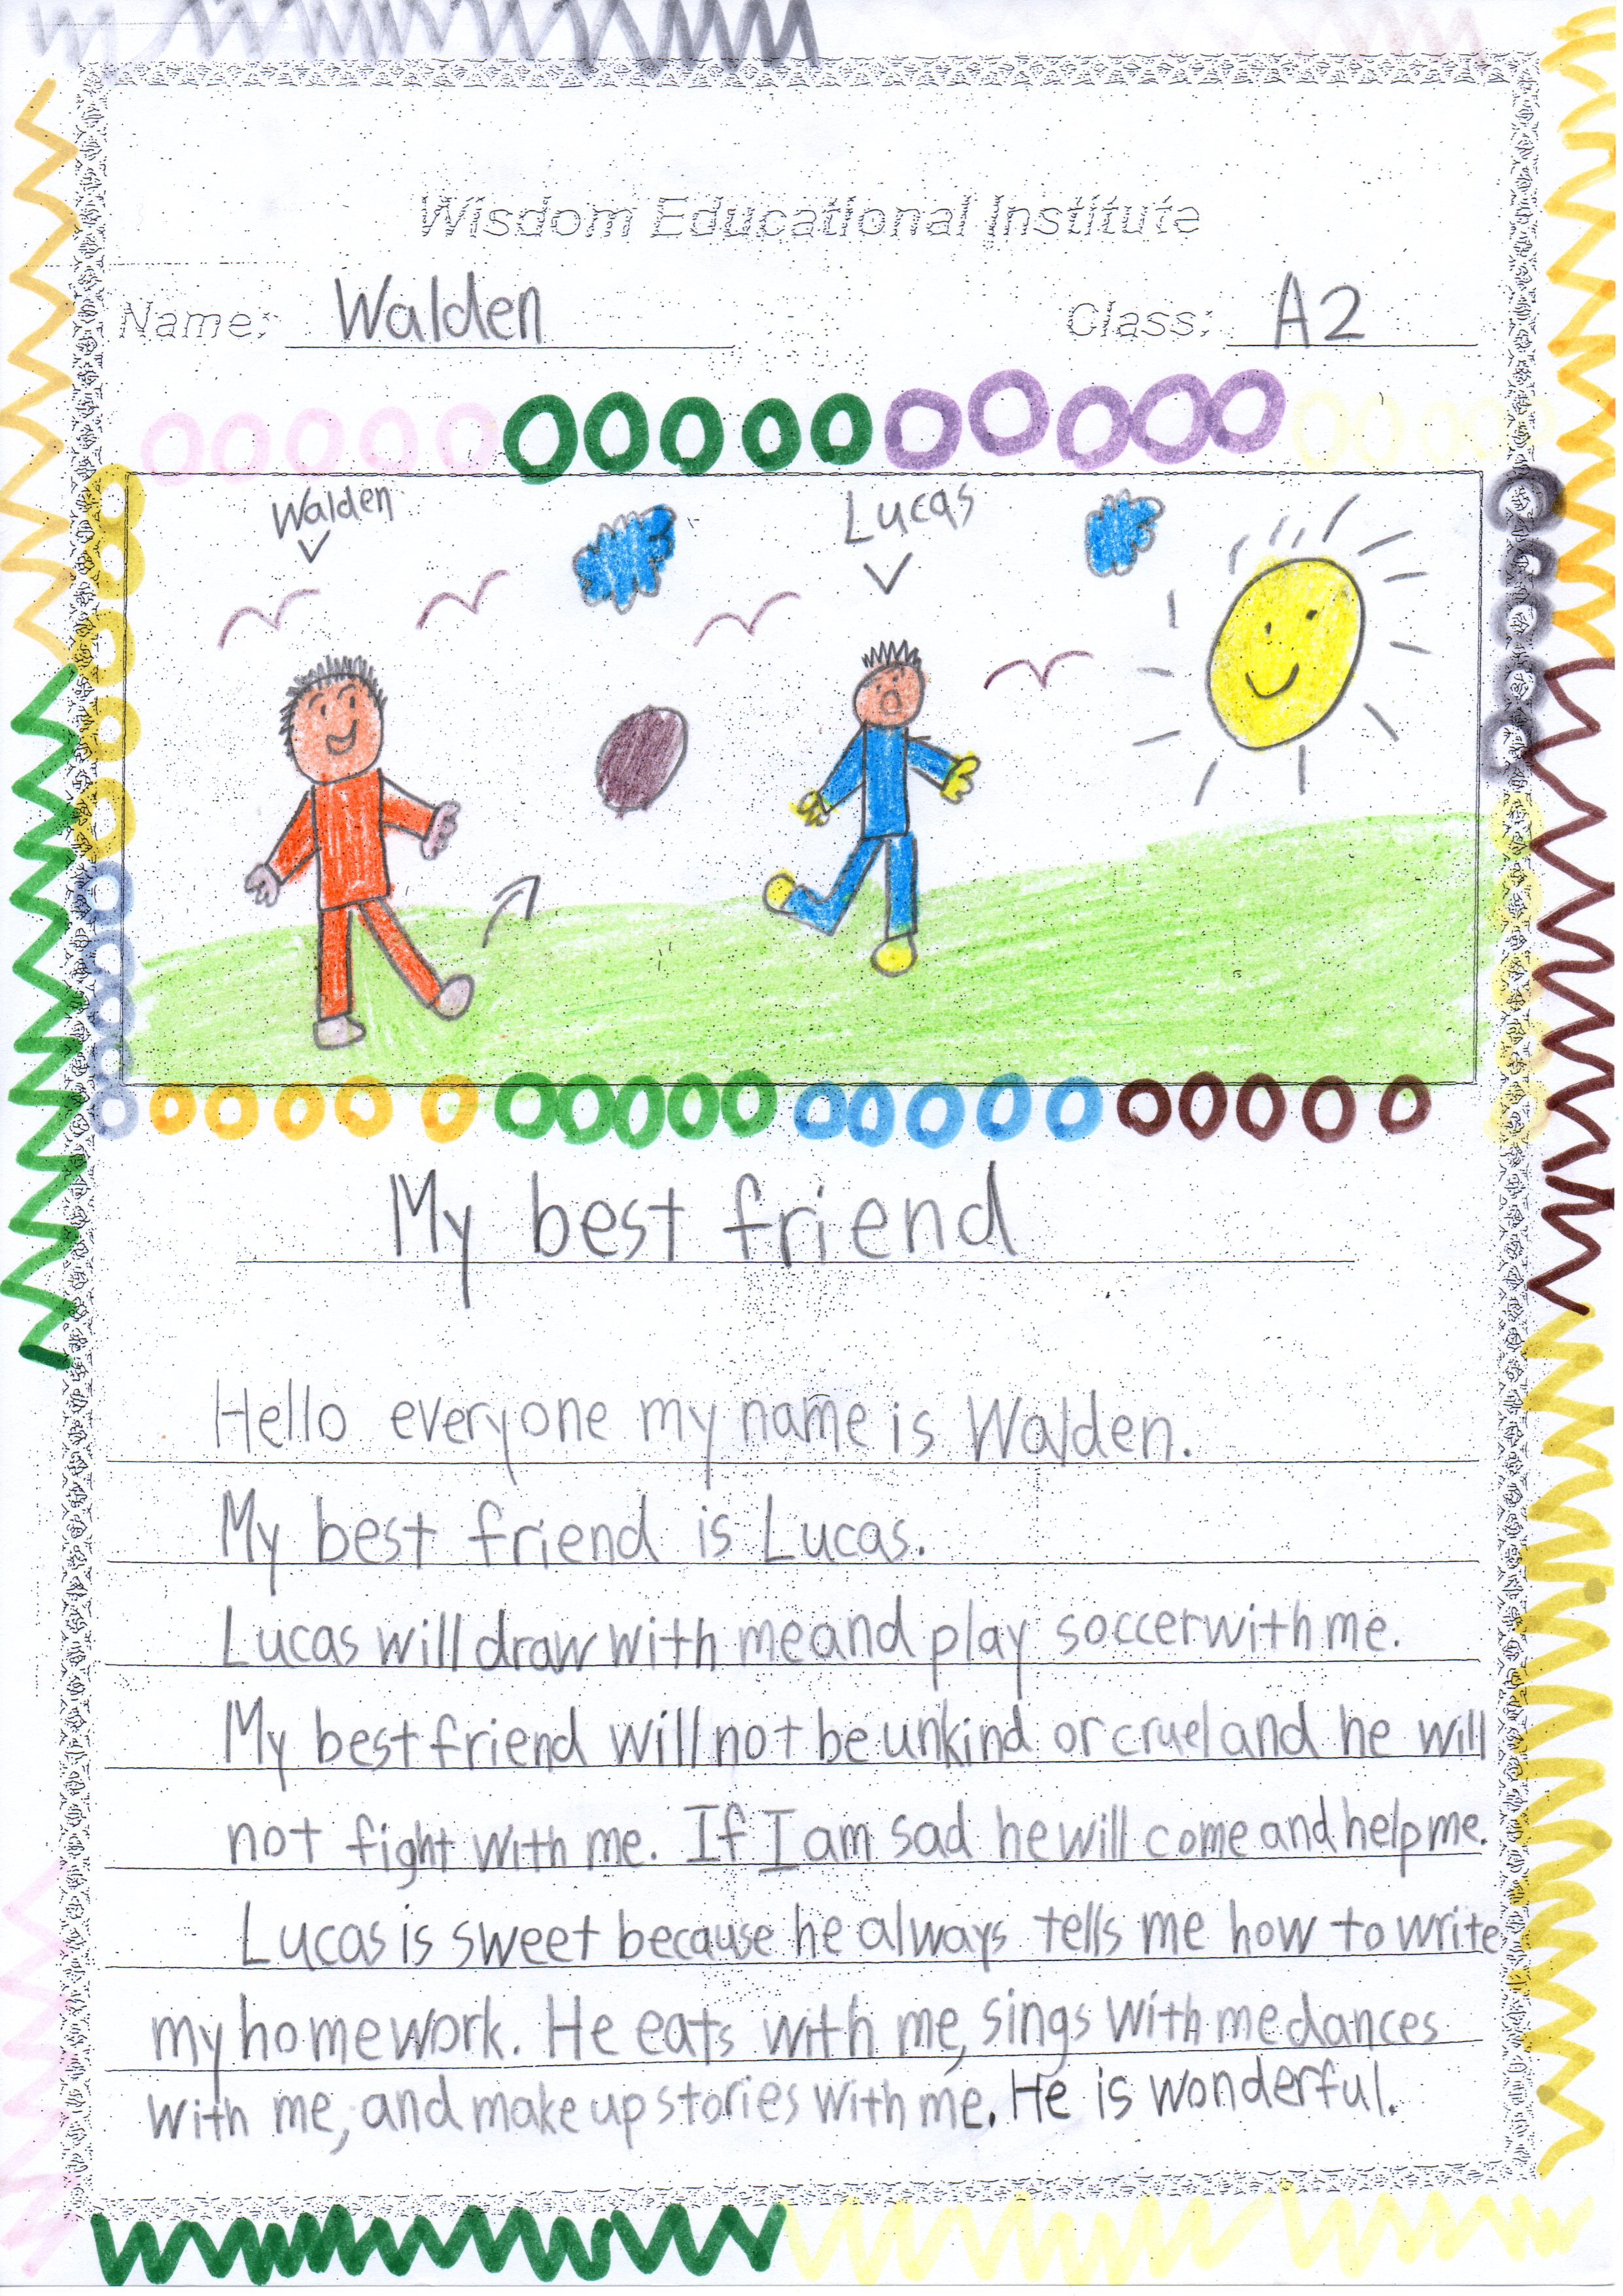 Wisdom Educational Institute
Name: Walden Class: A2
Walden Lucas
My best friend
Hello everyone my name is Walden.
My best friend is Lucas.
Lucas will draw with me and play soccer with me.
My best friend will not be unkind or cruel and he will
not fight with me. If I am sad he will come and help me.
Lucas is sweet because he always tells me how to write
my homework. He eats with me, sings with me dances
with me, and make up stories with me. He is wonderful.